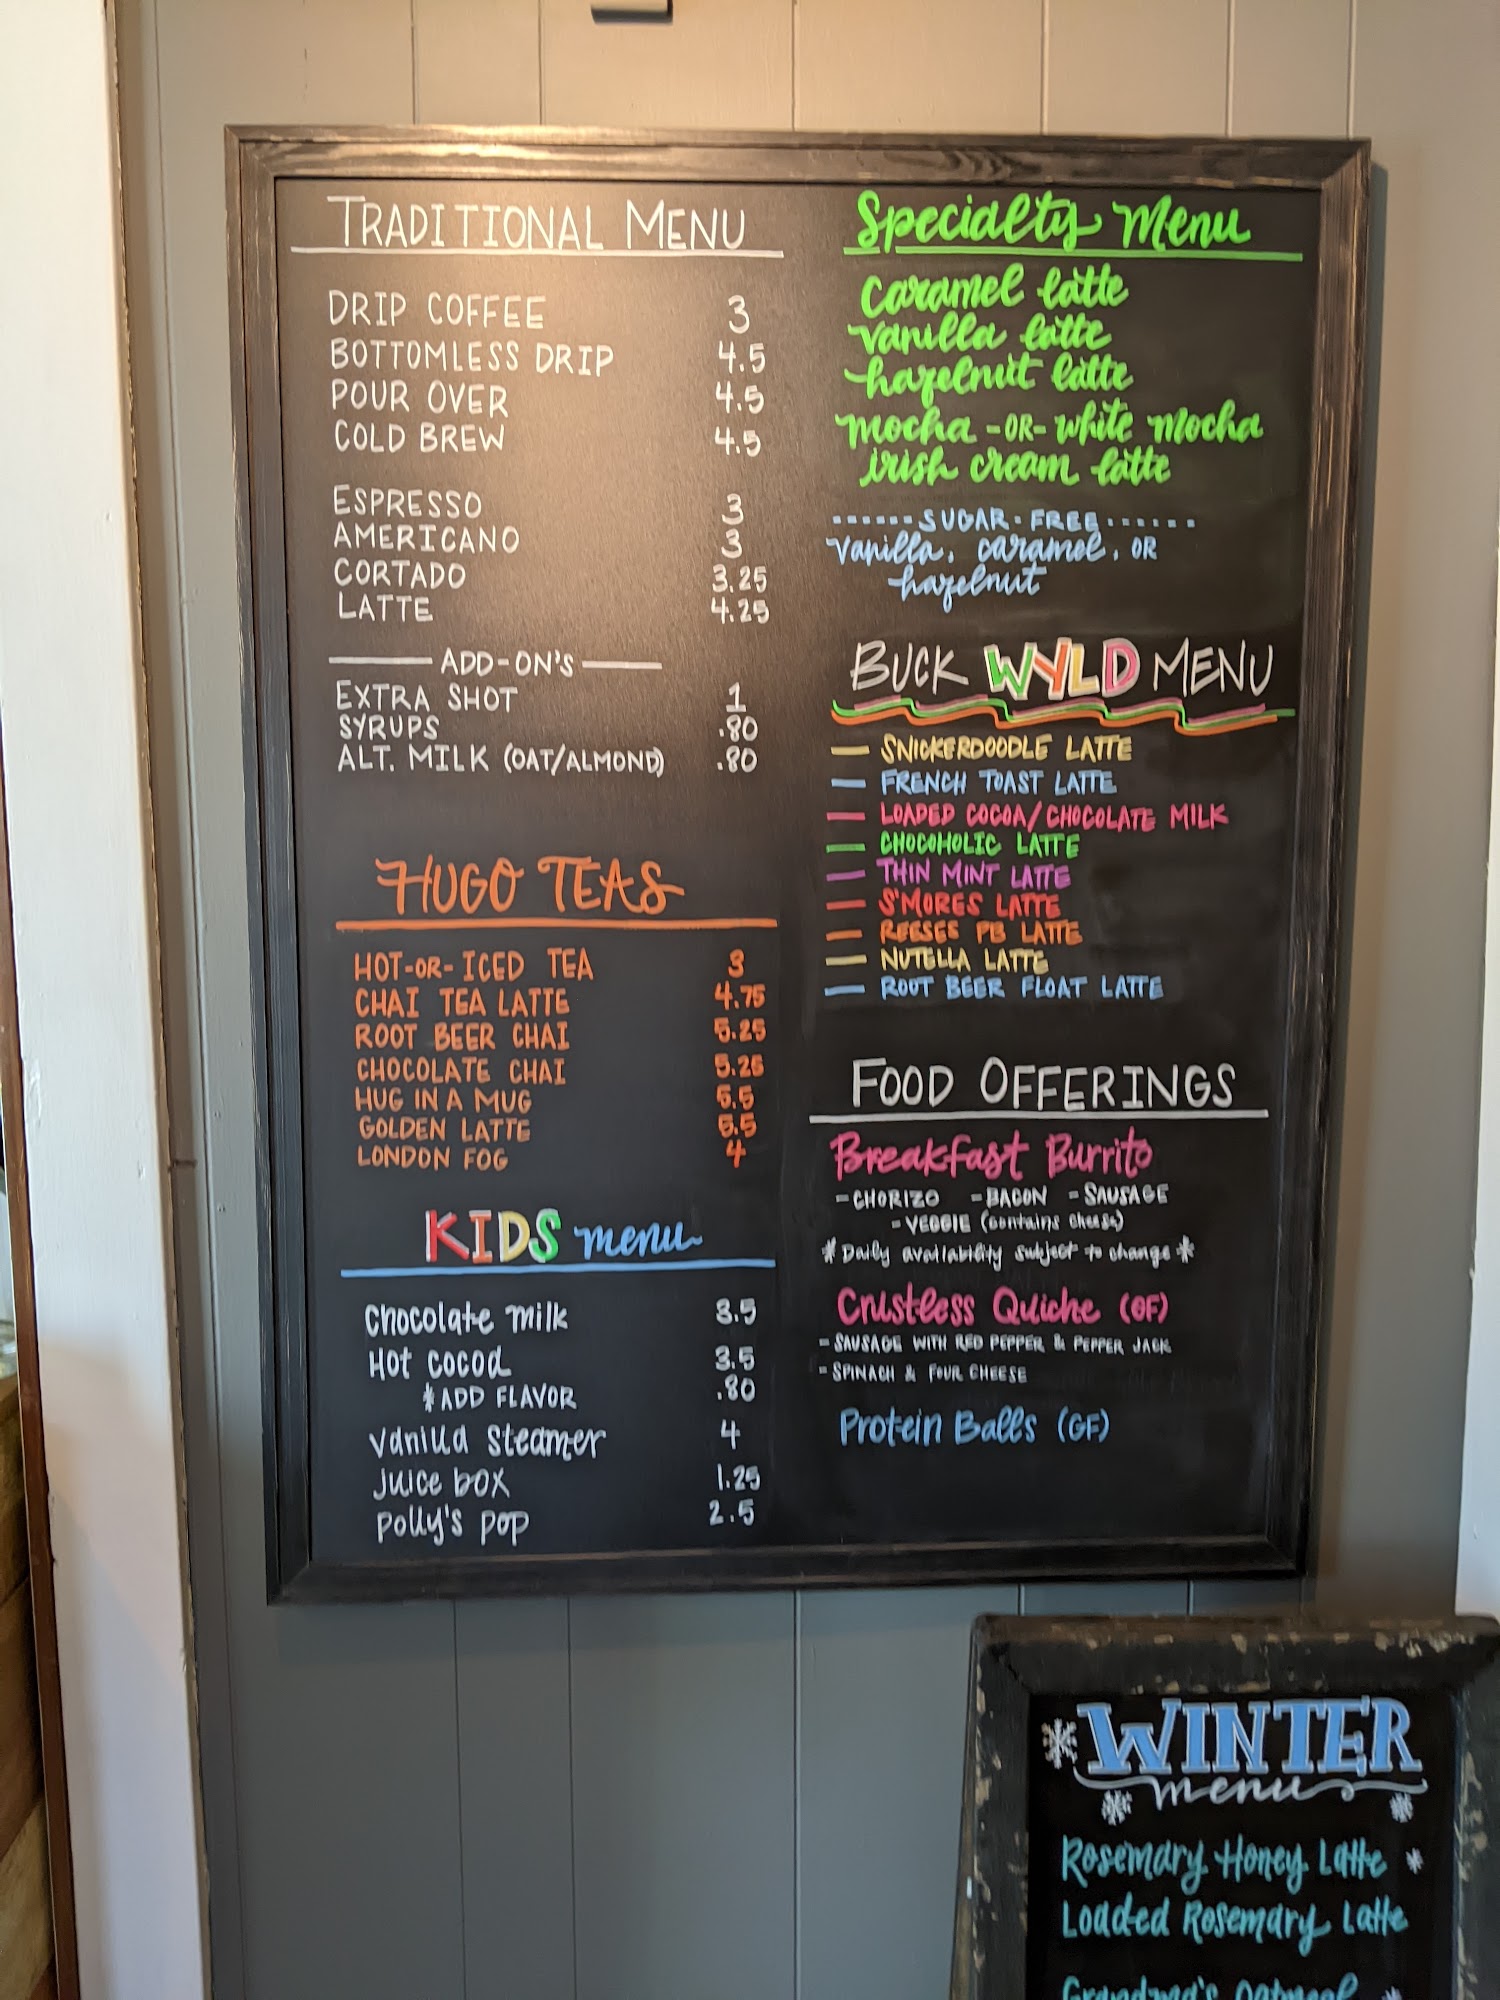 TRADITIONAL MENU
DRIP COFFEE 3
BOTTOMLESS DRIP 4.5
POUR OVER 4.5
COLD BREW 4.5
ESPRESSO 3
AMERICANO 3
CORTADO 3.25
LATTE 4.25
ADD-ON'S
EXTRA SHOT 1
SYRUPS .80
ALT. MILK (OAT/ALMOND) .80
HUGO TEAS
HOT-OR-ICED TEA 3
CHAI TEA LATTE 4.75
ROOT BEER CHAI 5.25
CHOCOLATE CHAI 5.25
HUG IN A MUG 5.5
GOLDEN LATTE 5.5
LONDON FOG 4
KIDS menu
Chocolate milk 3.5
Hot cocoa 3.5
*ADD FLAVOR .80
Vanilla Steamer 4
Juice box 1.25
Polly's pop 2.5
Specialty Menu
Caramel latte
vanilla latte
hazelnut latte
mocha -OR- white mocha
irish cream latte
SUGAR-FREE
Vanilla, caramel, OR
hazelnut
BUCK WYLD MENU
— SNICKERDOODLE LATTE
— FRENCH TOAST LATTE
— LOADED COCOA/CHOCOLATE MILK
— CHOCOHOLIC LATTE
— THIN MINT LATTE
— S'MORES LATTE
— REESES PB LATTE
— NUTELLA LATTE
— ROOT BEER FLOAT LATTE
FOOD OFFERINGS
Breakfast Burrito
- CHORIZO - BACON - SAUSAGE
- VEGGIE (contains cheese)
* Daily availability subject to change *
Crustless Quiche (GF)
- SAUSAGE WITH RED PEPPER & PEPPER JACK
- SPINACH & FOUR CHEESE
Protein Balls (GF)
WINTER
menu
Rosemary Honey Latte *
Loaded Rosemary Latte
Grandma's Oatmeal *